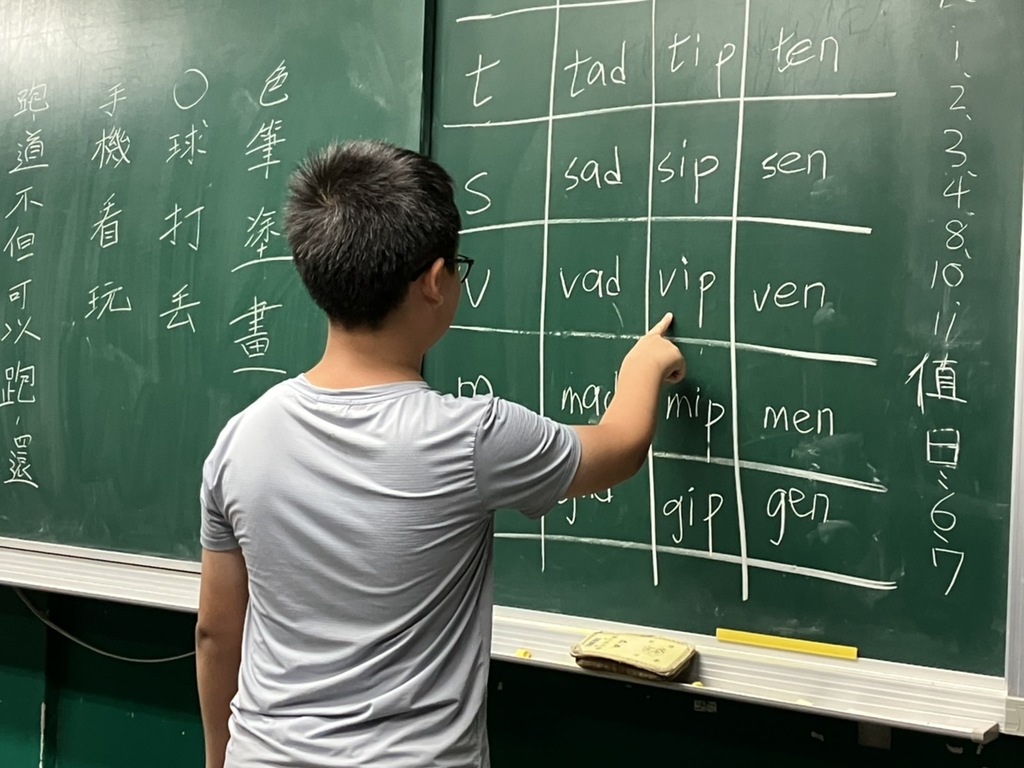 色筆塗畫
○球打丟
手機看玩
跑道不但可以跑,還
t tad tip ten
s sad sip sen
v vad vip ven
m mad mip men
gip gen
1、2、3、4、8、10、11
值日:6、7